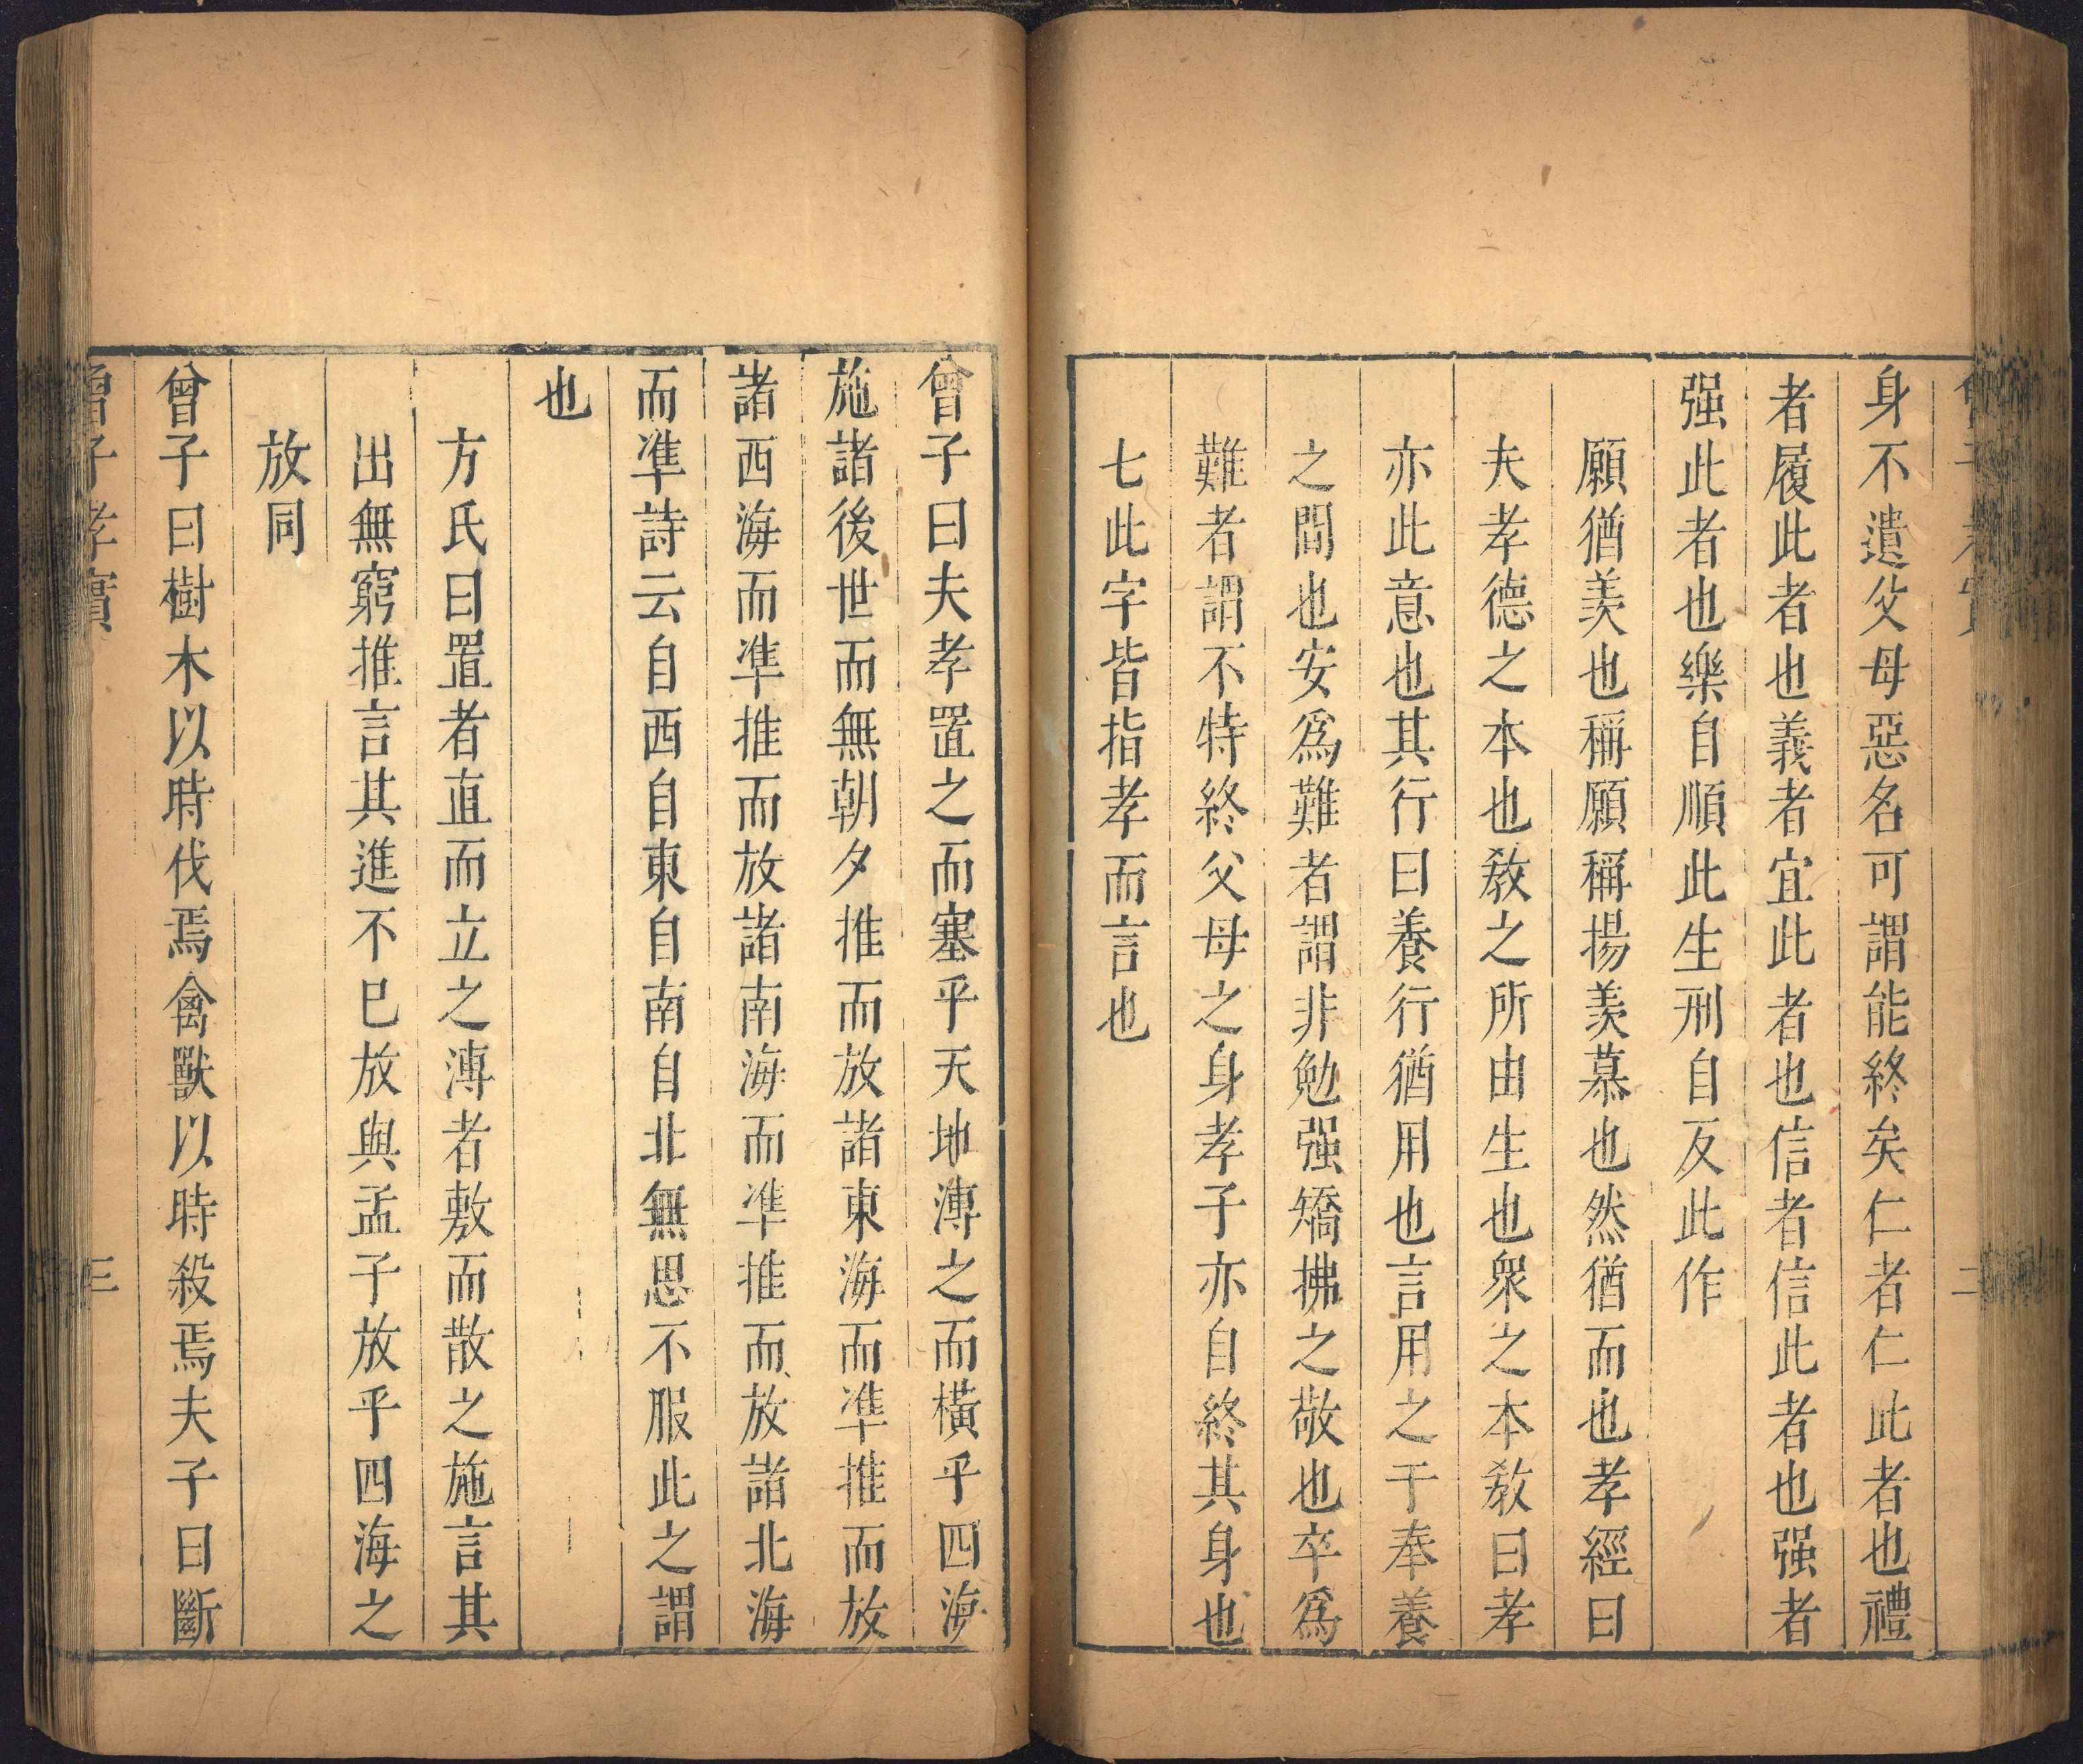 身不遺父母惡名可謂能終矣仁者仁此者也禮
者履此者也義者宜此者也信者信此者也强者
强此者也樂自順此生刑自反此作
願猶羨也稱願稱揚羨慕也然猶而也孝經曰
夫孝德之本也敎之所由生也衆之本敎曰孝
亦此意也其行曰養行猶用也言用之于奉養
之間也安爲難者謂非勉强矯拂之敬也卒爲
難者謂不特終父母之身孝子亦自終其身也
七此字皆指孝而言也
曾子曰夫孝置之而塞乎天地溥之而橫乎四海
施諸後世而無朝夕推而放諸東海而準推而放
諸西海而準推而放諸南海而準推而放諸北海
而準詩云自西自東自南自北無思不服此之謂
也
方氏曰置者直而立之溥者敷而散之施言其
出無窮推言其進不已放與孟子放乎四海之
放同
曾子曰樹木以時伐焉禽獸以時殺焉夫子曰斷
曾子孝實 三